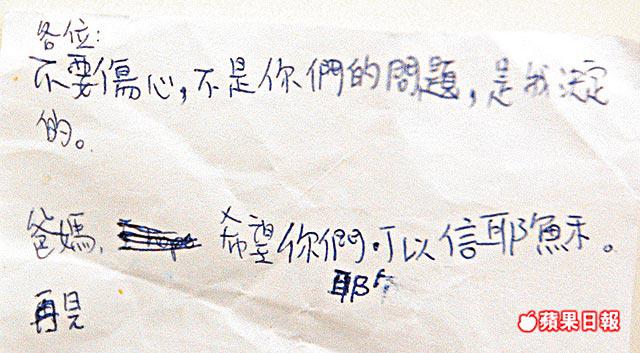 各位:
不要傷心,不是你們的問題,是我決定
的。
爸媽, hope 希望你們可以信耶穌。
耶穌
再見
蘋果日報